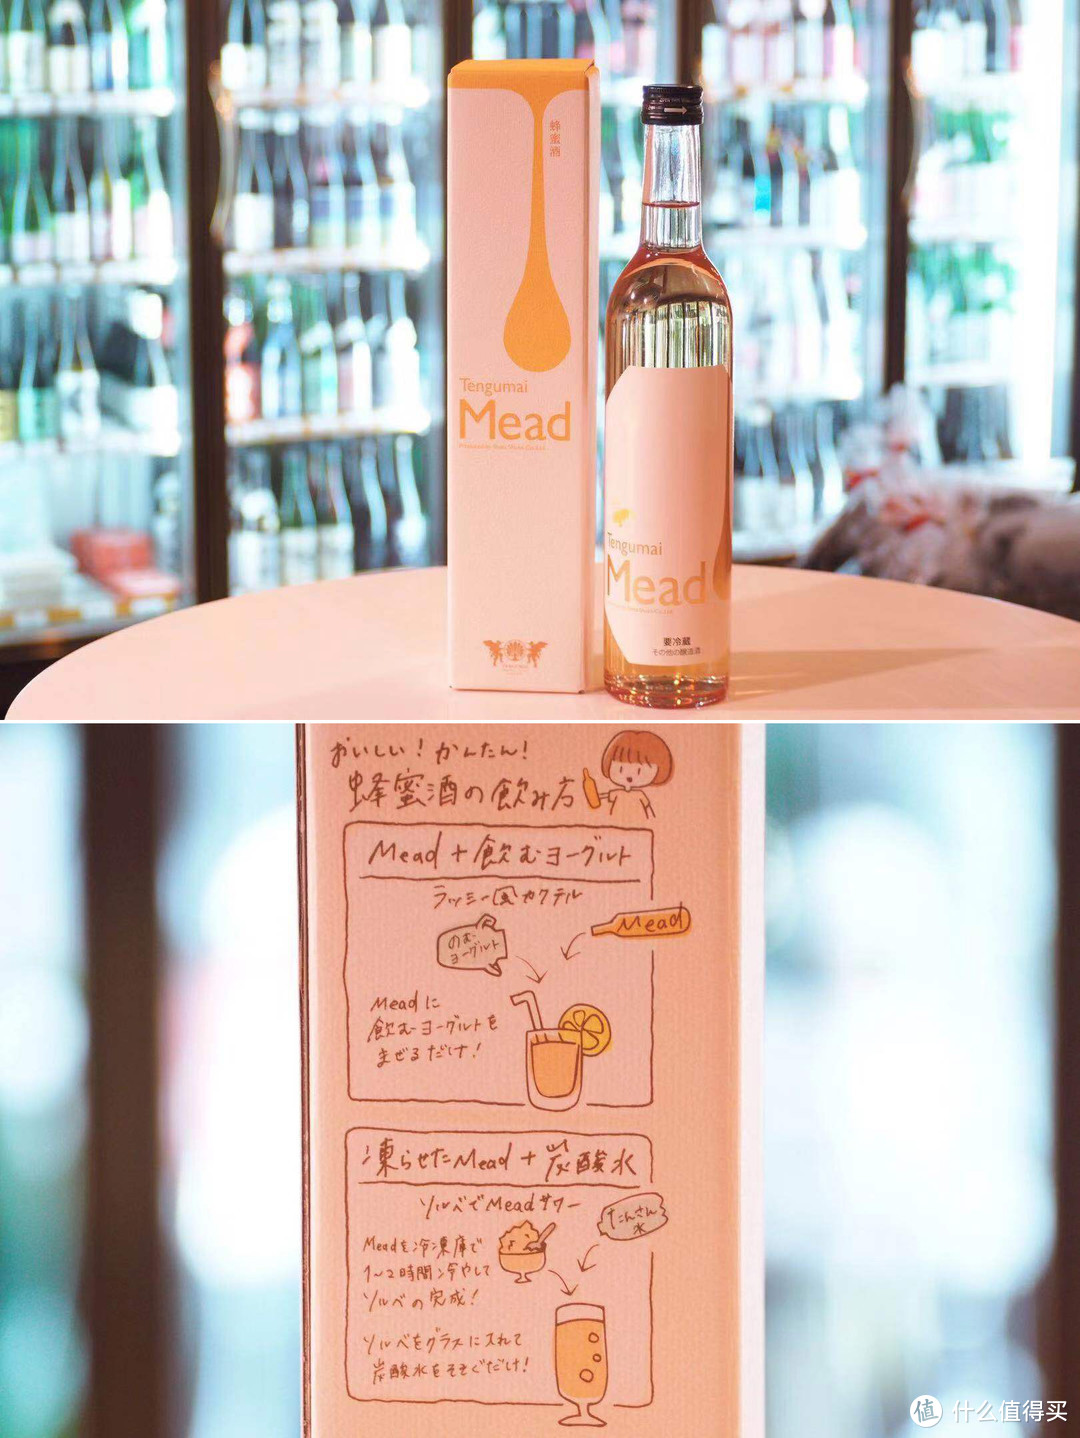 蜂蜜酒
Tengumai
Mead
Tengumai
Mead
要冷蔵
その他の醸造酒
おいしい！かんたん！
蜂蜜酒の飲み方
Mead＋飲むヨーグルト
ラッシー風カクテル
のむ
ヨーグルト
Mead
Meadに
飲むヨーグルトを
まぜるだけ！
凍らせたMead＋炭酸水
ソルベでMeadサワー
たんさん
水
Meadを冷凍庫で
1〜2時間冷やして
ソルベの完成！
ソルベをグラスに入れて
炭酸水をそそぐだけ！
值 什么值得买